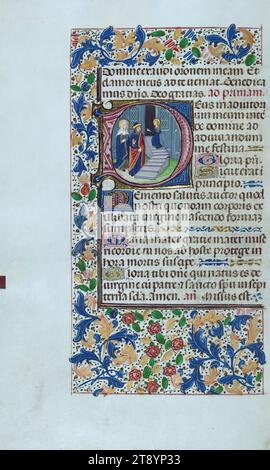 Domine exaudi oronem meam Et
clamor meus ad te veniat. Benedica
mus dno. Deo gratias. ad primam.
Deus in adiutoriu
meum inte
de domine ad
adiuuandum
me festina
Gloria pri
sicut erat i
principio.
Memento salutis auctor quod
nostri quondam corporis ex
illibata virgine nascendo formam
sumpseris.
Maria mater gratie mater miseri
cordie tu nos ab hoste protege et in
hora mortis suscipe.
Gloria tibi dne qui natus es de
virgine cum patre et sancto spu in sempi
terna secula. Amen. an. Missus est.
alamy
Image ID: 2T8YP33
www.alamy.com